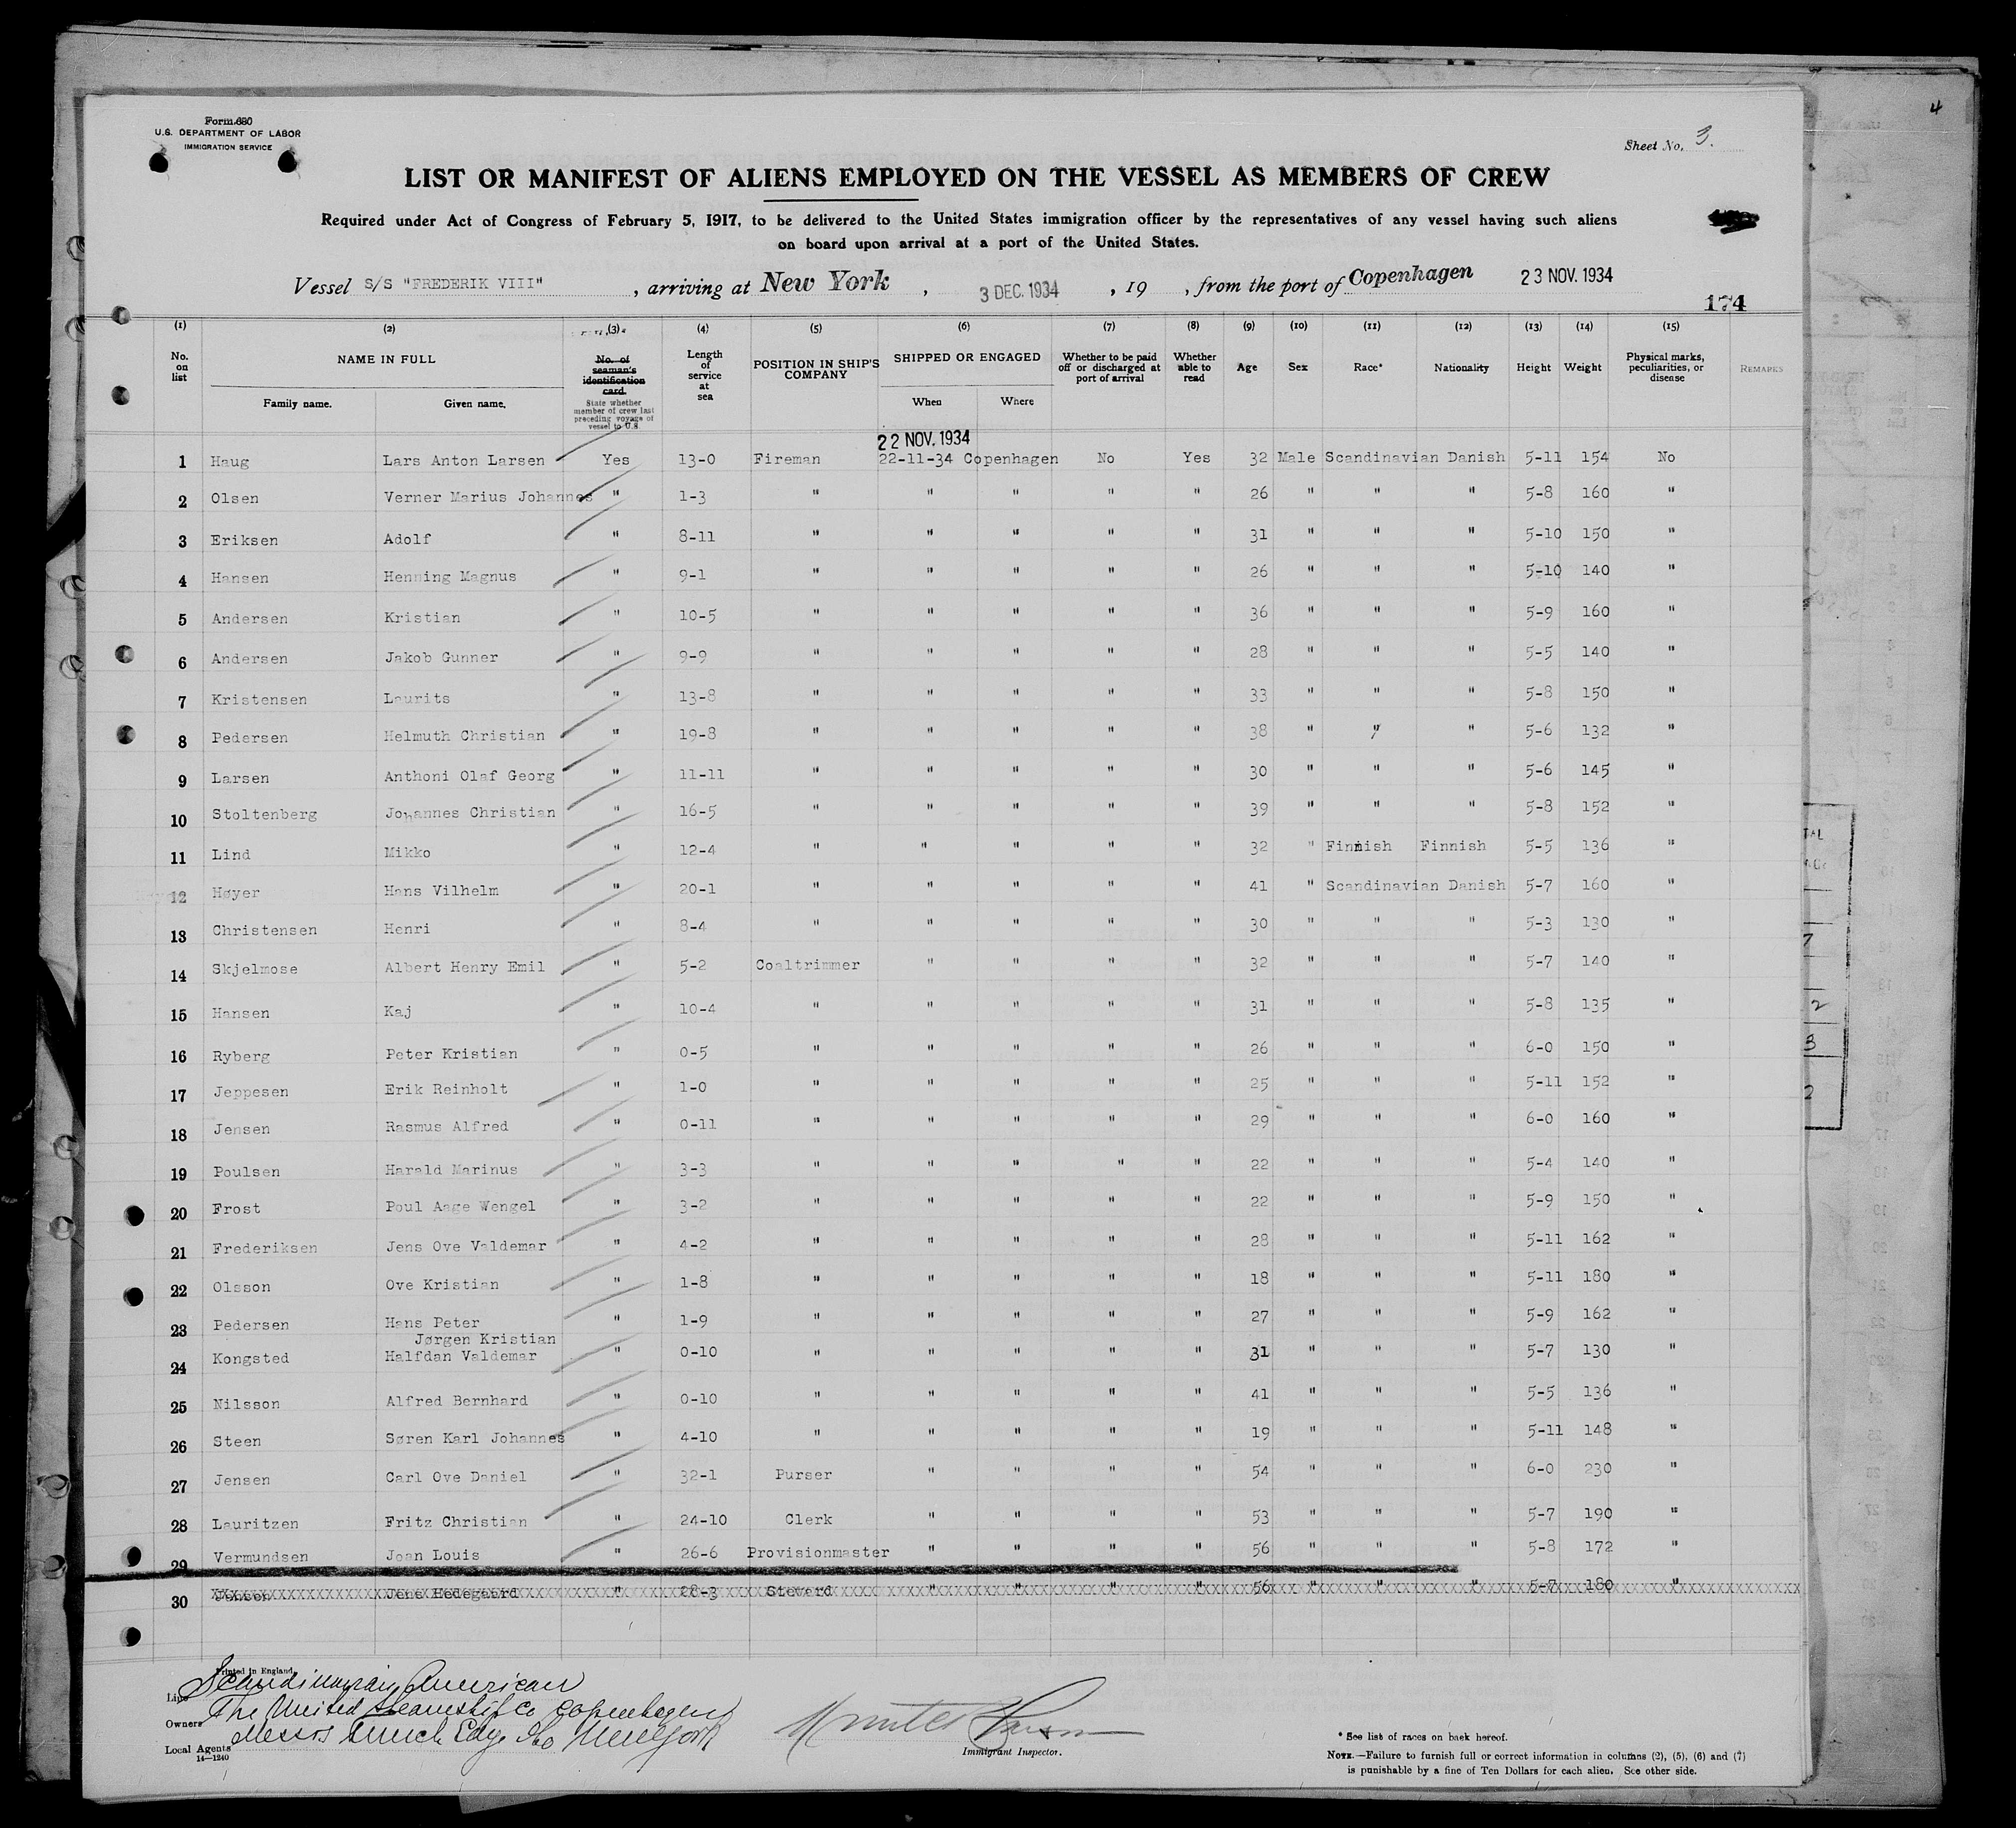 4
Form 680
U.S. DEPARTMENT OF LABOR
IMMIGRATION SERVICE
Sheet No. 3.
LIST OR MANIFEST OF ALIENS EMPLOYED ON THE VESSEL AS MEMBERS OF CREW
Required under Act of Congress of February 5, 1917, to be delivered to the United States immigration officer by the representatives of any vessel having such aliens
on board upon arrival at a port of the United States.
Vessel S/S "FREDERIK VIII", arriving at New York, 3 DEC. 1934, 19 , from the port of Copenhagen 23 NOV. 1934
174
(1) (2) (3) (4) (5) (6) (7) (8) (9) (10) (11) (12) (13) (14) (15)
No. on list NAME IN FULL Family name. Given name. No. of seaman's identification card. State whether member of crew last preceding voyage of vessel to U.S. Length of service at sea POSITION IN SHIP'S COMPANY SHIPPED OR ENGAGED When Where Whether to be paid off or discharged at port of arrival Whether able to read Age Sex Race* Nationality Height Weight Physical marks, peculiarities, or disease REMARKS
22 NOV. 1934
1 Haug Lars Anton Larsen Yes 13-0 Fireman 22-11-34 Copenhagen No Yes 32 Male Scandinavian Danish 5-11 154 No
2 Olsen Verner Marius Johannes " 1-3 " " " " " 26 " " " 5-8 160 "
3 Eriksen Adolf " 8-11 " " " " " 31 " " " 5-10 150 "
4 Hansen Henning Magnus " 9-1 " " " " " 26 " " " 5-10 140 "
5 Andersen Kristian " 10-5 " " " " " 36 " " " 5-9 160 "
6 Andersen Jakob Gunner " 9-9 " " " " " 28 " " " 5-5 140 "
7 Kristensen Laurits " 13-8 " " " " " 33 " " " 5-8 150 "
8 Pedersen Helmuth Christian " 19-8 " " " " " 38 " " " 5-6 132 "
9 Larsen Anthoni Olaf Georg " 11-11 " " " " " 30 " " " 5-6 145 "
10 Stoltenberg Johannes Christian " 16-5 " " " " " 39 " " " 5-8 152 "
11 Lind Mikko " 12-4 " " " " " 32 " Finnish Finnish 5-5 136 "
12 Høyer Hans Vilhelm " 20-1 " " " " " 41 " Scandinavian Danish 5-7 160 "
13 Christensen Henri " 8-4 " " " " " 30 " " " 5-3 130 "
14 Skjelmose Albert Henry Emil " 5-2 Coaltrimmer " " " " 32 " " " 5-7 140 "
15 Hansen Kaj " 10-4 " " " " " 31 " " " 5-8 135 "
16 Ryberg Peter Kristian " 0-5 " " " " " 26 " " " 6-0 150 "
17 Jeppesen Erik Reinholt " 1-0 " " " " " 25 " " " 5-11 152 "
18 Jensen Rasmus Alfred " 0-11 " " " " " 29 " " " 6-0 160 "
19 Poulsen Harald Marinus " 3-3 " " " " " 22 " " " 5-4 140 "
20 Frost Poul Aage Wengel " 3-2 " " " " " 22 " " " 5-9 150 "
21 Frederiksen Jens Ove Valdemar " 4-2 " " " " " 28 " " " 5-11 162 "
22 Olsson Ove Kristian " 1-8 " " " " " 18 " " " 5-11 180 "
23 Pedersen Hans Peter " 1-9 " " " " " 27 " " " 5-9 162 "
Jørgen Kristian
24 Kongsted Halfdan Valdemar " 0-10 " " " " " 31 " " " 5-7 130 "
25 Nilsson Alfred Bernhard " 0-10 " " " " " 41 " " " 5-5 136 "
26 Steen Søren Karl Johannes " 4-10 " " " " " 19 " " " 5-11 148 "
27 Jensen Carl Ove Daniel " 32-1 Purser " " " " 54 " " " 6-0 230 "
28 Lauritzen Fritz Christian " 24-10 Clerk " " " " 53 " " " 5-7 190 "
29 Vermundsen Joan Louis " 26-6 Provisionmaster " " " " 56 " " " 5-8 172 "
30 Jensen Jens Hedegaard " 28-3 Steverd " " " " 56 " " " 5-7 180 "
Printed in England.
Line Scandinavian American
Owners The United Steamship Co Copenhagen
Local Agents Messrs Funch Edye & Co New York
14—1240
Immigrant Inspector.
* See list of races on back hereof.
NOTE.—Failure to furnish full or correct information in columns (2), (5), (6) and (7)
is punishable by a fine of Ten Dollars for each alien. See other side.